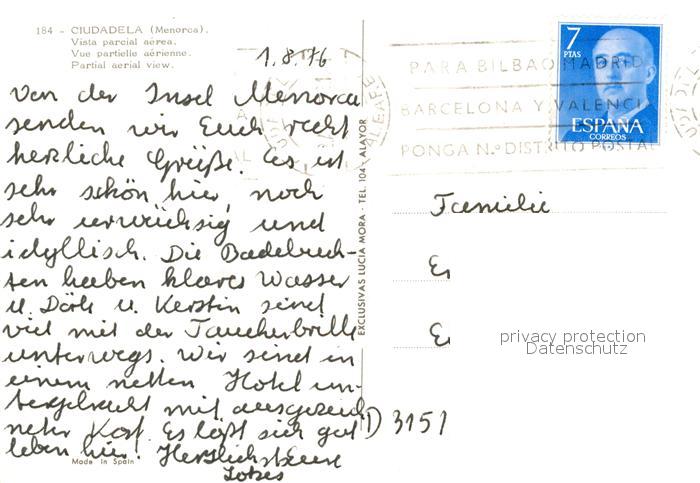 184 - CIUDADELA (Menorca).
Vista parcial aérea.
Vue partielle aérienne.
Partial aerial view.
1.8.76
Von der Insel Menorca
senden wir Euch recht
herzliche Grüße. Es ist
sehr schön hier, noch
sehr urwüchsig und
idyllisch. Die Badebuch-
ten haben klares Wasser
u. Dörk u. Kerstin sind
viel mit der Taucherbrille
unterwegs. Wir sind in
einem netten Hotel un-
tergebracht mit ausgezeich
neter Kost. Es läßt sich gut
leben hier. Herzlichst Eure
Made in Spain
EXCLUSIVAS LUCIA MORA - TEL. 104 - ALAYOR
PARA BILBAO MADRID
BARCELONA Y VALENCIA
PONGA N.º DISTRITO POSTAL
7
PTAS
ESPAÑA
CORREOS
Familie
E
E
privacy protection
Datenschutz
D 3151